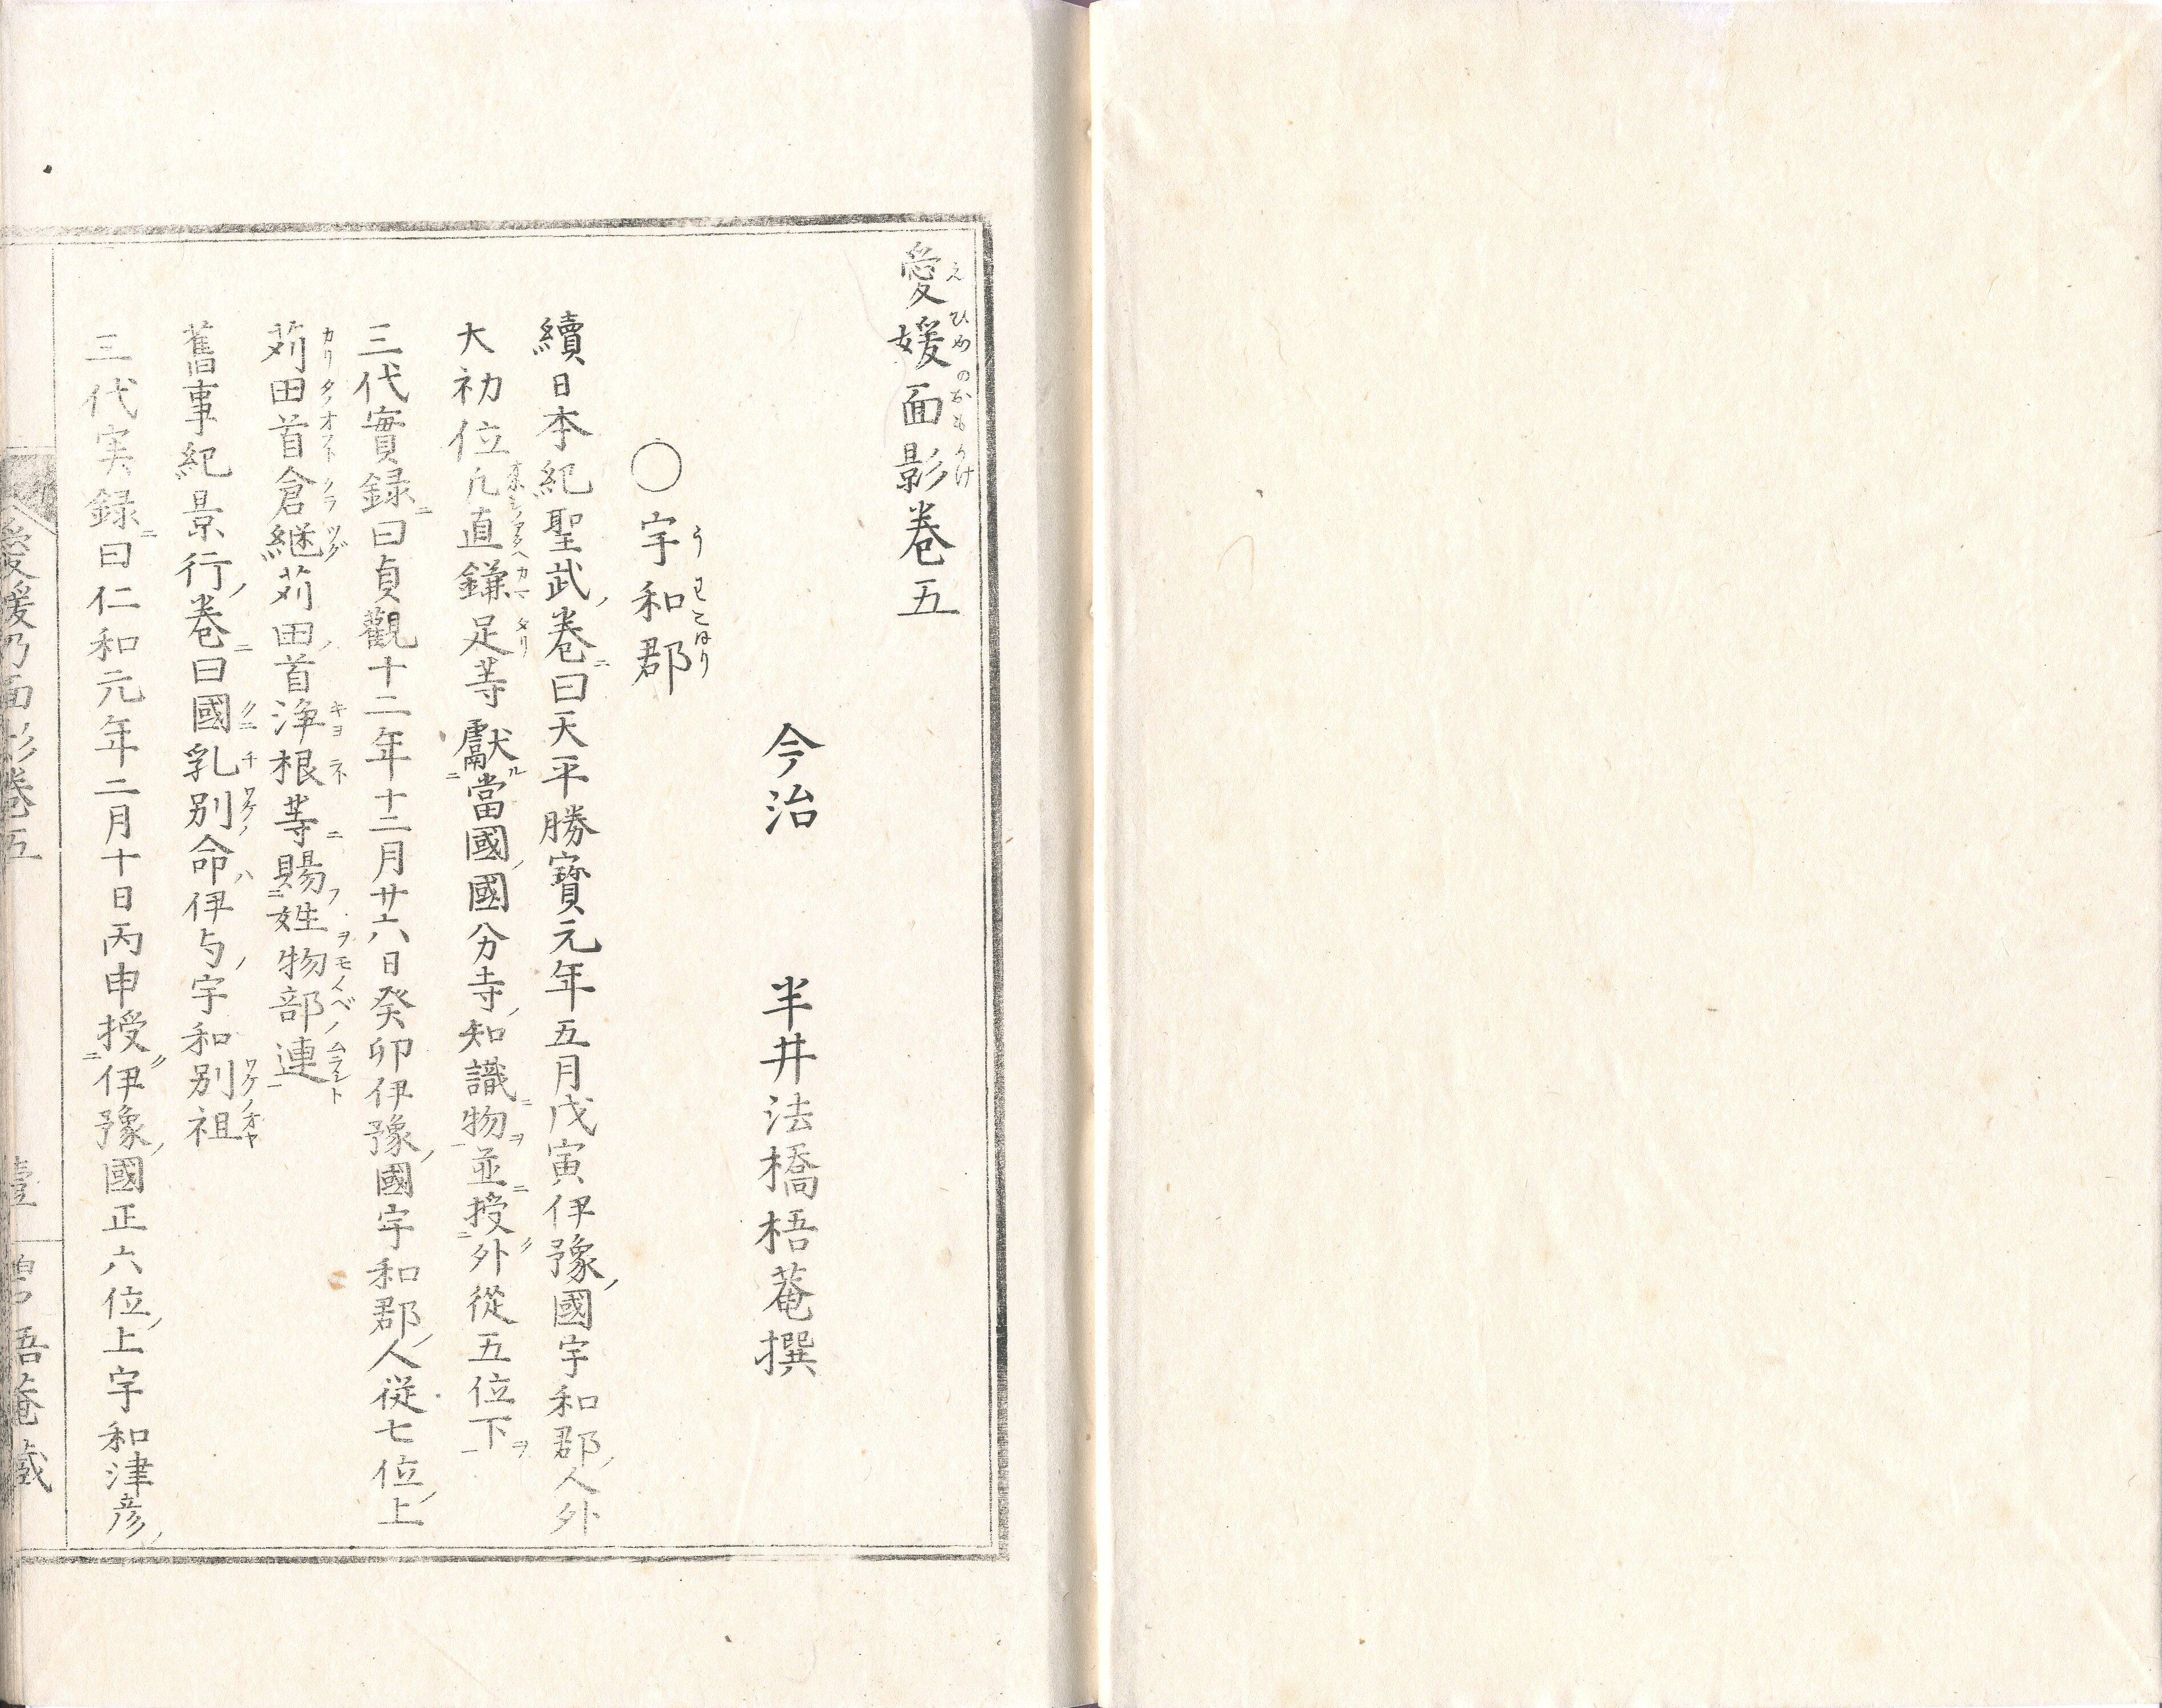 愛媛面影卷五
今治 半井法橋梧菴撰
○宇和郡
續日本紀聖武ノ卷ニ曰天平勝寶元年五月戊寅伊豫ノ國宇和郡ノ人外
大初位凡直鎌足等獻ル當國ノ國分寺ノ知識ニ物ヲ並ニ授ク外從五位下ヲ
三代實録ニ曰貞觀十二年十二月廿六日癸卯伊豫ノ國宇和郡ノ人從七位ノ上
苅田首倉継苅田ノ首浄根等ニ賜フ姓ヲ物部連ト
舊事紀景行ノ卷ニ曰國乳別命ハ伊与ノ宇和別祖
三代実録ニ曰仁和元年二月十日丙申授ク伊豫ノ國正六位ノ上宇和津彦ノ
愛媛乃面影卷五 壹 碧梧菴藏